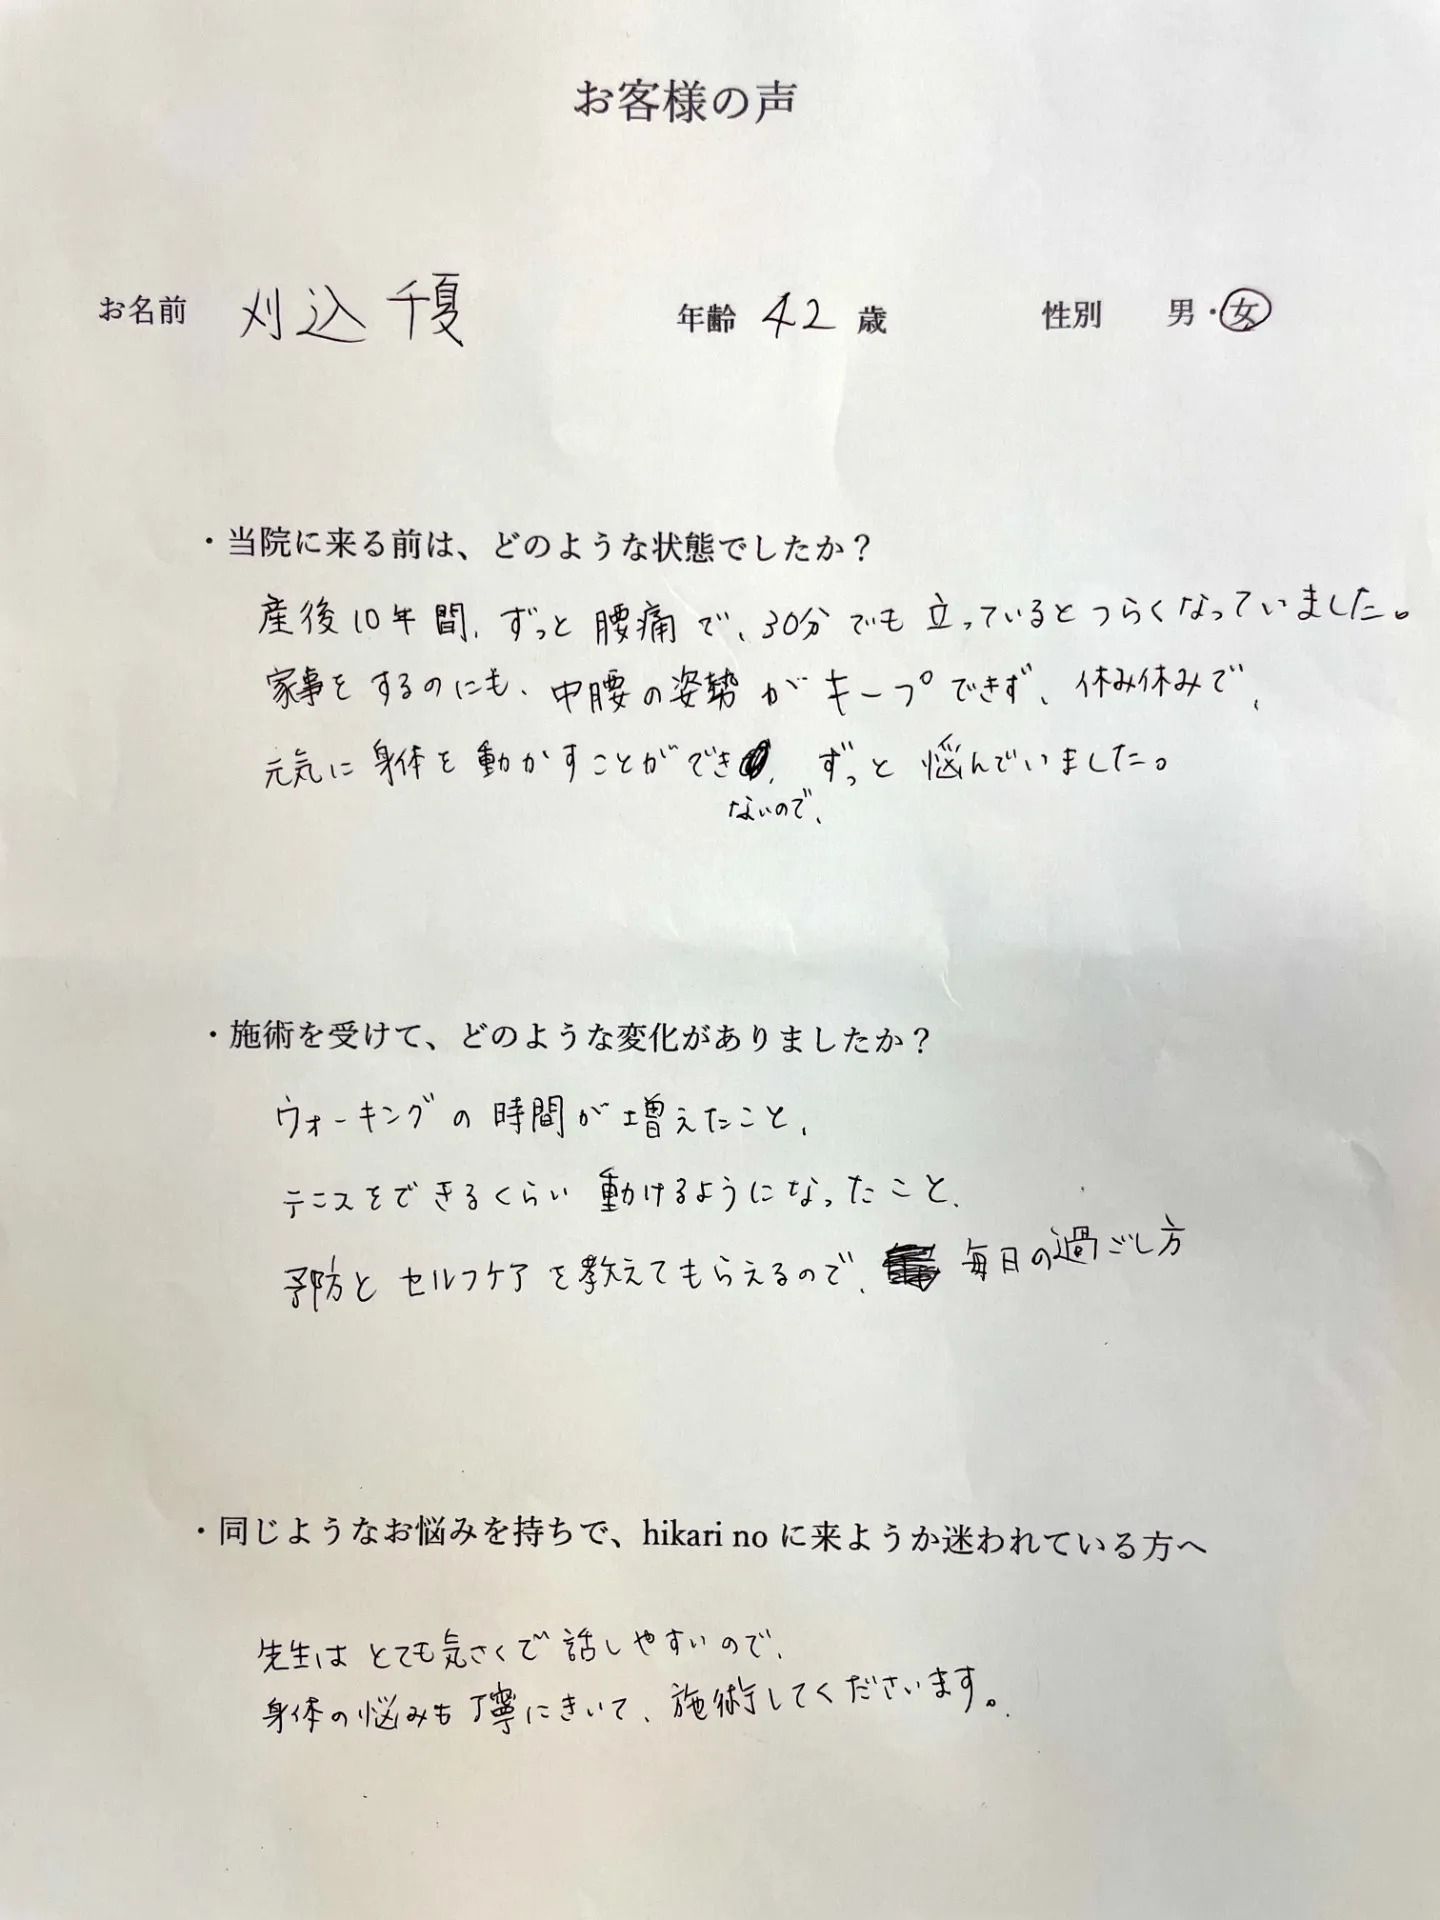 お客様の声
お名前 刈込 千夏 年齢 42 歳 性別 男・女
・当院に来る前は、どのような状態でしたか？
産後10年間、ずっと腰痛で、30分でも立っているとつらくなっていました。
家事をするのにも、中腰の姿勢がキープできず、休み休みで、
元気に身体を動かすことができ、ずっと悩んでいました。
ないので、
・施術を受けて、どのような変化がありましたか？
ウォーキングの時間が増えたこと、
テニスをできるくらい動けるようになったこと、
予防とセルフケアを教えてもらえるので、毎日の過ごし方
・同じようなお悩みを持ちで、hikari no に来ようか迷われている方へ
先生はとても気さくで話しやすいので、
身体の悩みも丁寧にきいて、施術してくださいます。